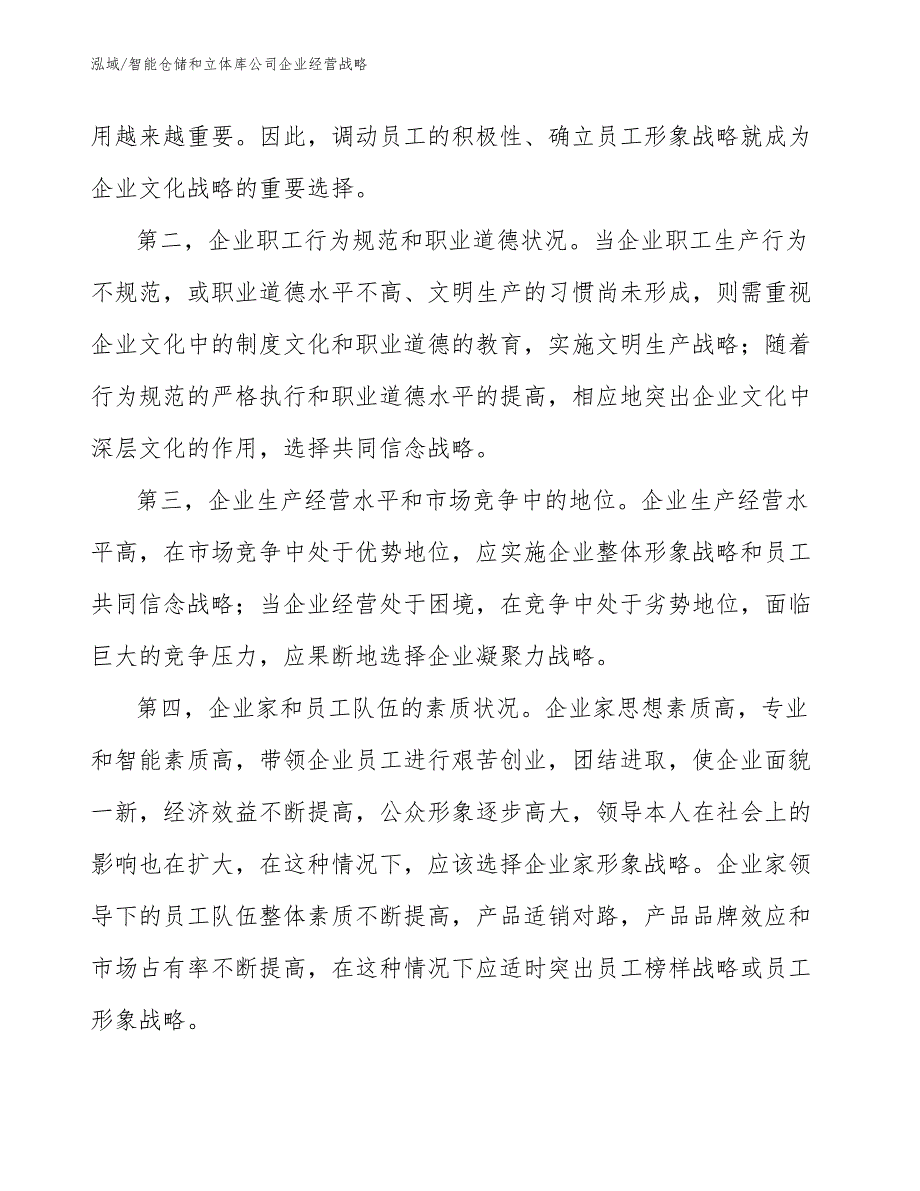 泓域/智能仓储和立体库公司企业经营战略
用越来越重要。因此，调动员工的积极性、确立员工形象战略就成为
企业文化战略的重要选择。
第二，企业职工行为规范和职业道德状况。当企业职工生产行为
不规范，或职业道德水平不高、文明生产的习惯尚未形成，则需重视
企业文化中的制度文化和职业道德的教育，实施文明生产战略；随着
行为规范的严格执行和职业道德水平的提高，相应地突出企业文化中
深层文化的作用，选择共同信念战略。
第三，企业生产经营水平和市场竞争中的地位。企业生产经营水
平高，在市场竞争中处于优势地位，应实施企业整体形象战略和员工
共同信念战略；当企业经营处于困境，在竞争中处于劣势地位，面临
巨大的竞争压力，应果断地选择企业凝聚力战略。
第四，企业家和员工队伍的素质状况。企业家思想素质高，专业
和智能素质高，带领企业员工进行艰苦创业，团结进取，使企业面貌
一新，经济效益不断提高，公众形象逐步高大，领导本人在社会上的
影响也在扩大，在这种情况下，应该选择企业家形象战略。企业家领
导下的员工队伍整体素质不断提高，产品适销对路，产品品牌效应和
市场占有率不断提高，在这种情况下应适时突出员工榜样战略或员工
形象战略。